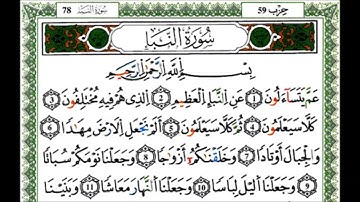 حزب 59
سورة النبإ 78
سورة النبإ
بسم الله الرحمن الرحيم
عم يتساءلون 1 عن النبإ العظيم 2 الذي هم فيه مختلفون 3
كلا سيعلمون 4 ثم كلا سيعلمون 5 ألم نجعل الأرض مهادا 6
والجبال أوتادا 7 وخلقناكم أزواجا 8 وجعلنا نومكم سباتا
9 وجعلنا اليل لباسا 10 وجعلنا النهار معاشا 11 وبنينا